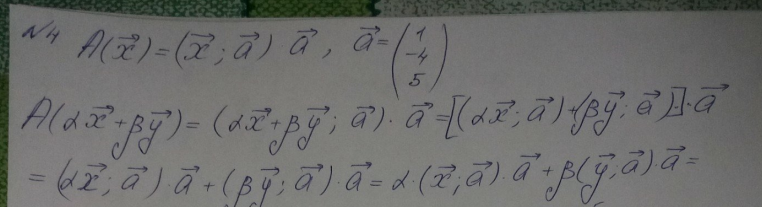 N4 A(x⃗)=(x⃗; a⃗) a⃗, a⃗=(1 -4 5)
A(αx⃗+βy⃗)=(αx⃗+βy⃗; a⃗)·a⃗=[(αx⃗; a⃗)+(βy⃗; a⃗)]·a⃗
=(αx⃗; a⃗)·a⃗+(βy⃗; a⃗)·a⃗=α·(x⃗; a⃗)·a⃗+β(y⃗; a⃗)·a⃗=